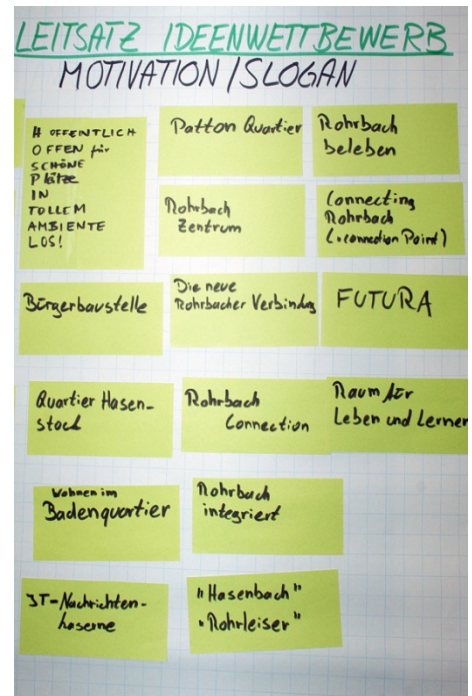 LEITSATZ IDEENWETTBEWERB
MOTIVATION/SLOGAN
# OFFENTLICH
OFFEN für
SCHÖNE
Plätze
IN
TOLLEM
AMBIENTE
LOS!
Patton Quartier
Rohrbach
beleben
Rohrbach
Zentrum
Connecting
Rohrbach
(.connection Point)
Bürgerbaustelle
Die neue
Rohrbacher Verbindung
FUTURA
Quartier Hasen-
stock
Rohrbach
Connection
Raum für
Leben und Lernen
Wohnen im
Badenquartier
Rohrbach
integriert
IT-Nachrichten-
kaserne
"Hasenbach"
"Rohrleiser"